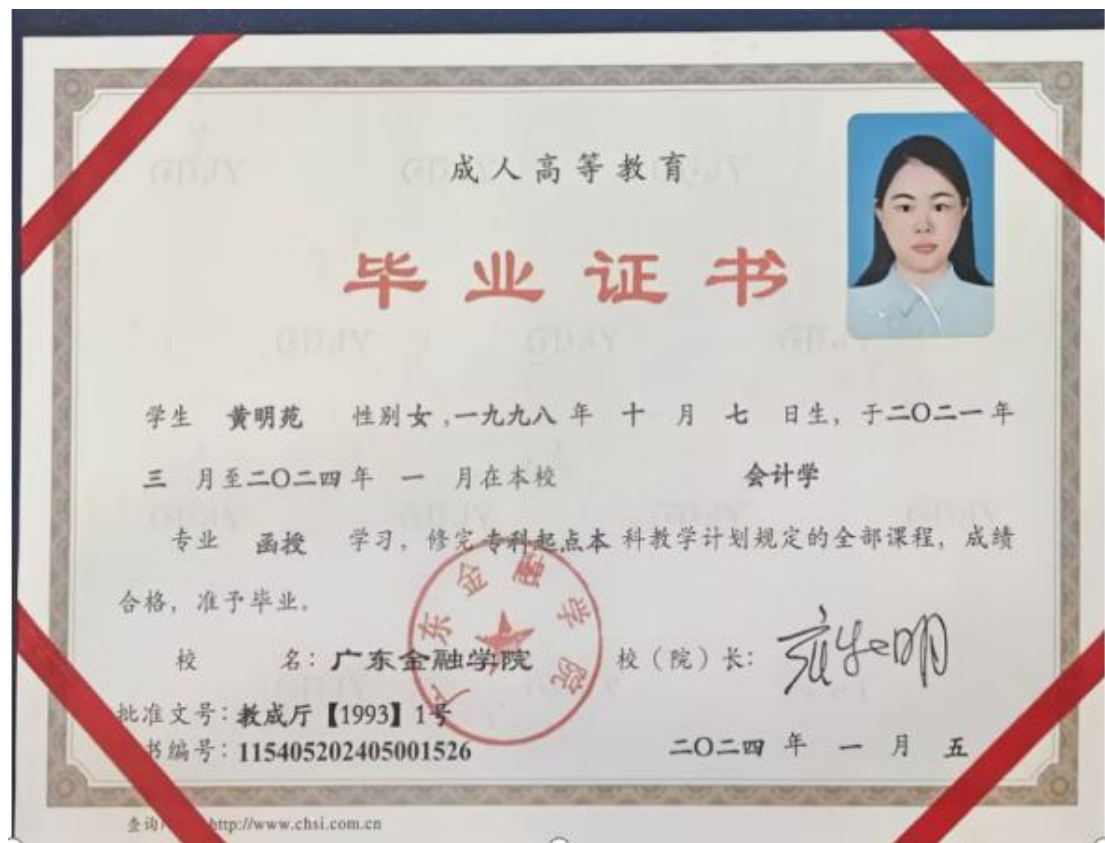 成人高等教育
毕业证书
学生 黄明苑 性别女,一九九八 年 十 月 七 日生, 于二〇二一年
三 月至二〇二四年 一 月在本校 会计学
专业 函授 学习, 修完专科起点本 科教学计划规定的全部课程, 成绩
合格, 准予毕业.
校 名: 广东金融学院 校(院)长:
广东金融学院
批准文号: 教成厅【1993】1号
书编号: 115405202405001526 二〇二四 年 一 月 五
查询 http://www.chsi.com.cn